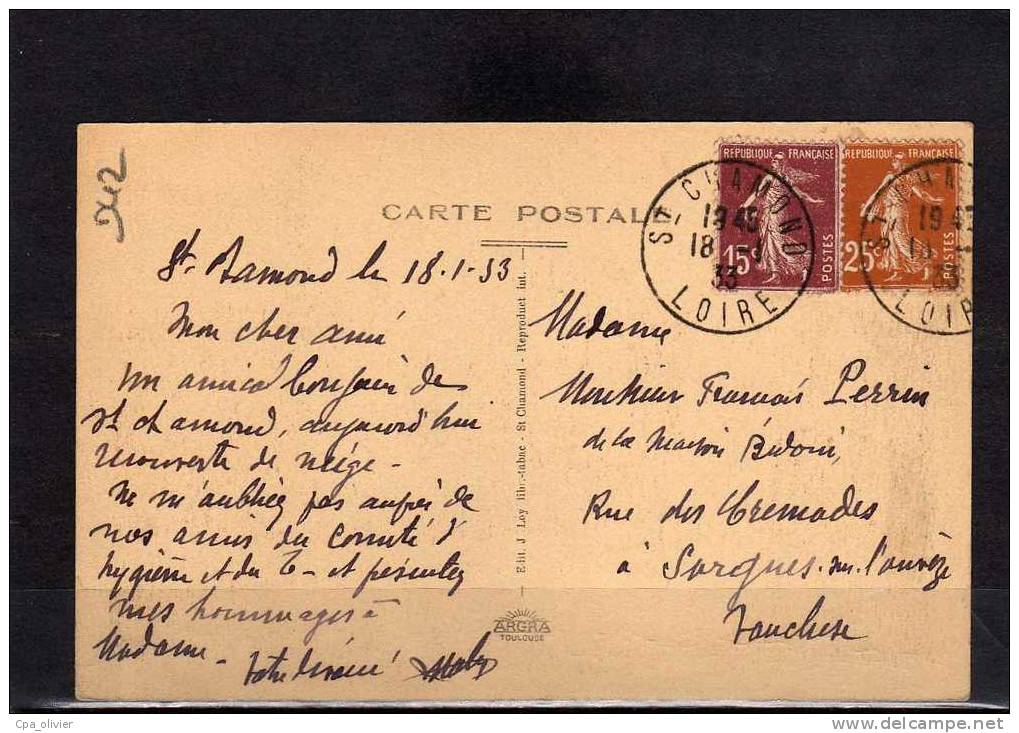 942
CARTE POSTALE
REPUBLIQUE FRANÇAISE
15c
POSTES
REPUBLIQUE FRANÇAISE
25c
POSTES
ST CHAMOND
19 45
18 -1
33
LOIRE
19 45
33
LOIR
St. Chamond le 18.1.33
Mon cher ami
un amical bonjour de
St Chamond, aujourd'hui
recouverte de neige -
Ne m'oubliez pas auprès de
nos amis du Comité d'
hygiène et du T- et présentez
mes hommages à
Madame - Votre dévoué
Edit. J. Loy libr.-tabac - St Chamond - Reproduct int.
ARGRA
TOULOUSE
Madame
Monsieur François Perrin
de la Maison
Rue des
à Sorgues-sur-l'ouvèze
Vaucluse
Cpa_olivier
www.delcampe.net